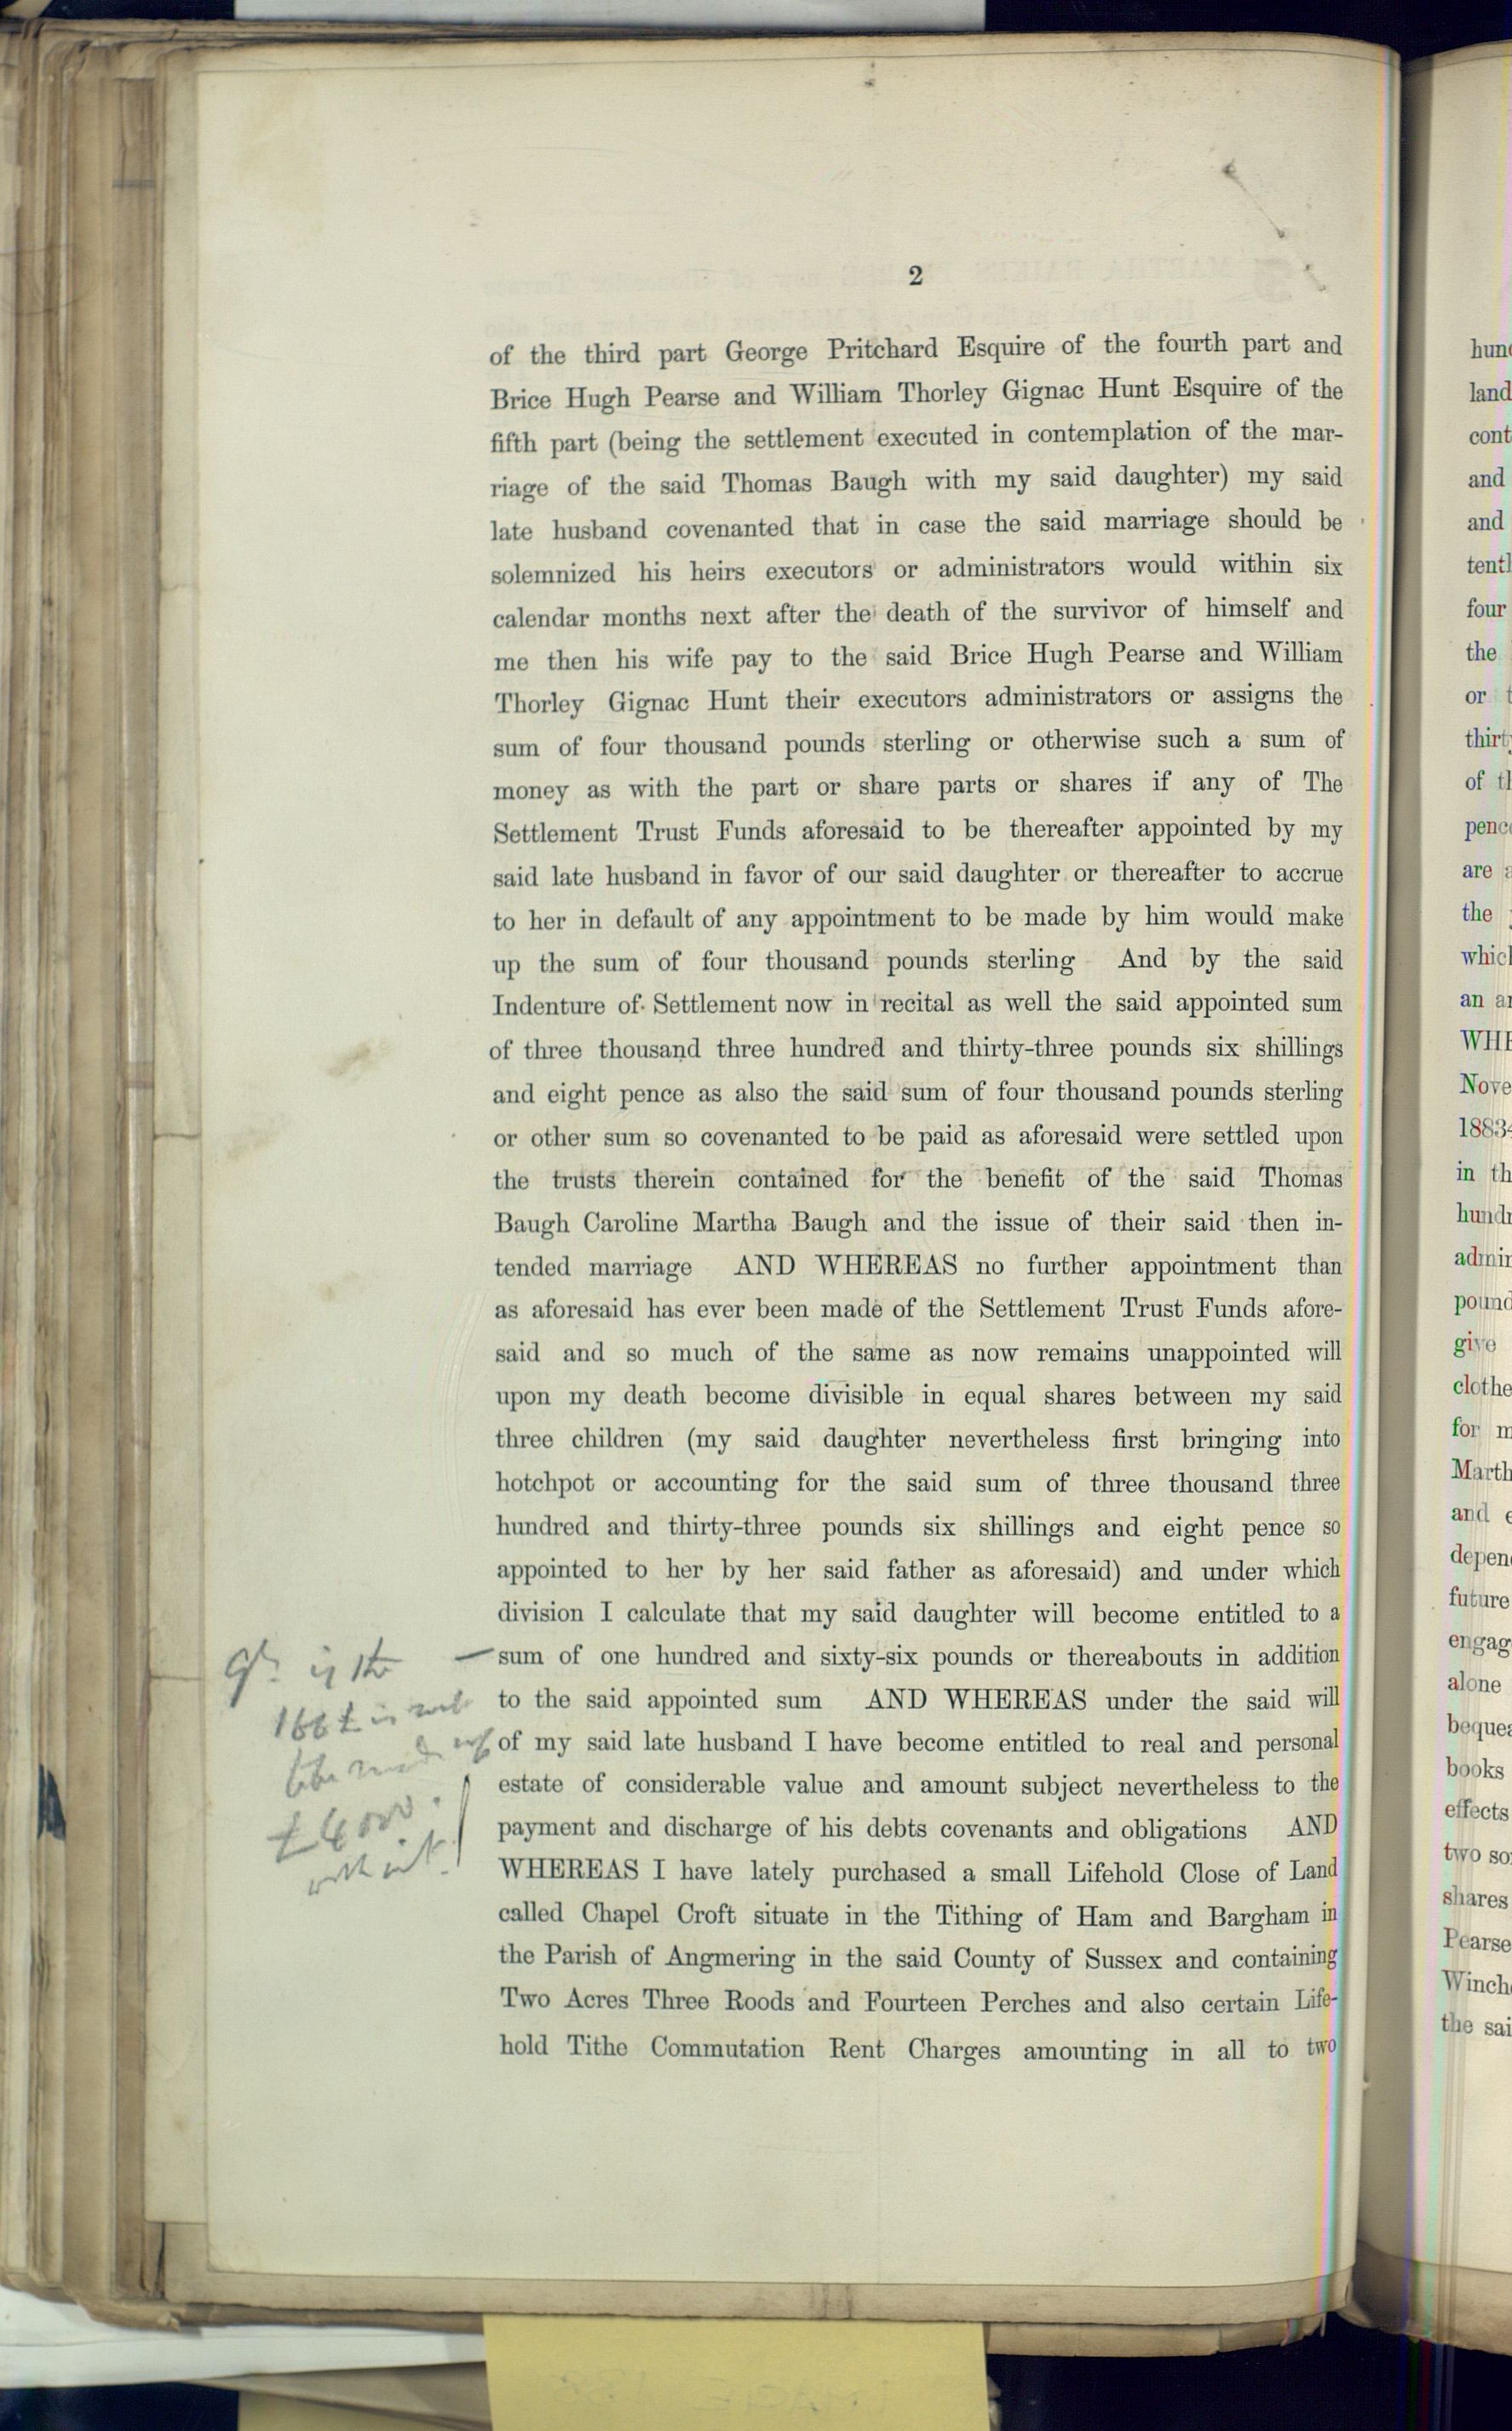 2
of the third part George Pritchard Esquire of the fourth part and
Brice Hugh Pearse and William Thorley Gignac Hunt Esquire of the
fifth part (being the settlement executed in contemplation of the mar-
riage of the said Thomas Baugh with my said daughter) my said
late husband covenanted that in case the said marriage should be
solemnized his heirs executors or administrators would within six
calendar months next after the death of the survivor of himself and
me then his wife pay to the said Brice Hugh Pearse and William
Thorley Gignac Hunt their executors administrators or assigns the
sum of four thousand pounds sterling or otherwise such a sum of
money as with the part or share parts or shares if any of The
Settlement Trust Funds aforesaid to be thereafter appointed by my
said late husband in favor of our said daughter or thereafter to accrue
to her in default of any appointment to be made by him would make
up the sum of four thousand pounds sterling And by the said
Indenture of Settlement now in recital as well the said appointed sum
of three thousand three hundred and thirty-three pounds six shillings
and eight pence as also the said sum of four thousand pounds sterling
or other sum so covenanted to be paid as aforesaid were settled upon
the trusts therein contained for the benefit of the said Thomas
Baugh Caroline Martha Baugh and the issue of their said then in-
tended marriage AND WHEREAS no further appointment than
as aforesaid has ever been made of the Settlement Trust Funds afore-
said and so much of the same as now remains unappointed will
upon my death become divisible in equal shares between my said
three children (my said daughter nevertheless first bringing into
hotchpot or accounting for the said sum of three thousand three
hundred and thirty-three pounds six shillings and eight pence so
appointed to her by her said father as aforesaid) and under which
division I calculate that my said daughter will become entitled to a
sum of one hundred and sixty-six pounds or thereabouts in addition
to the said appointed sum AND WHEREAS under the said will
of my said late husband I have become entitled to real and personal
estate of considerable value and amount subject nevertheless to the
payment and discharge of his debts covenants and obligations AND
WHEREAS I have lately purchased a small Lifehold Close of Land
called Chapel Croft situate in the Tithing of Ham and Bargham in
the Parish of Angmering in the said County of Sussex and containing
Two Acres Three Roods and Fourteen Perches and also certain Life-
hold Tithe Commutation Rent Charges amounting in all to two
166£ is
£4000
land
cont
and
and
four
the
or
of
are
the
an
1883
in
give
for
and
future
alone
books
effects
two
shares
Pearse
the